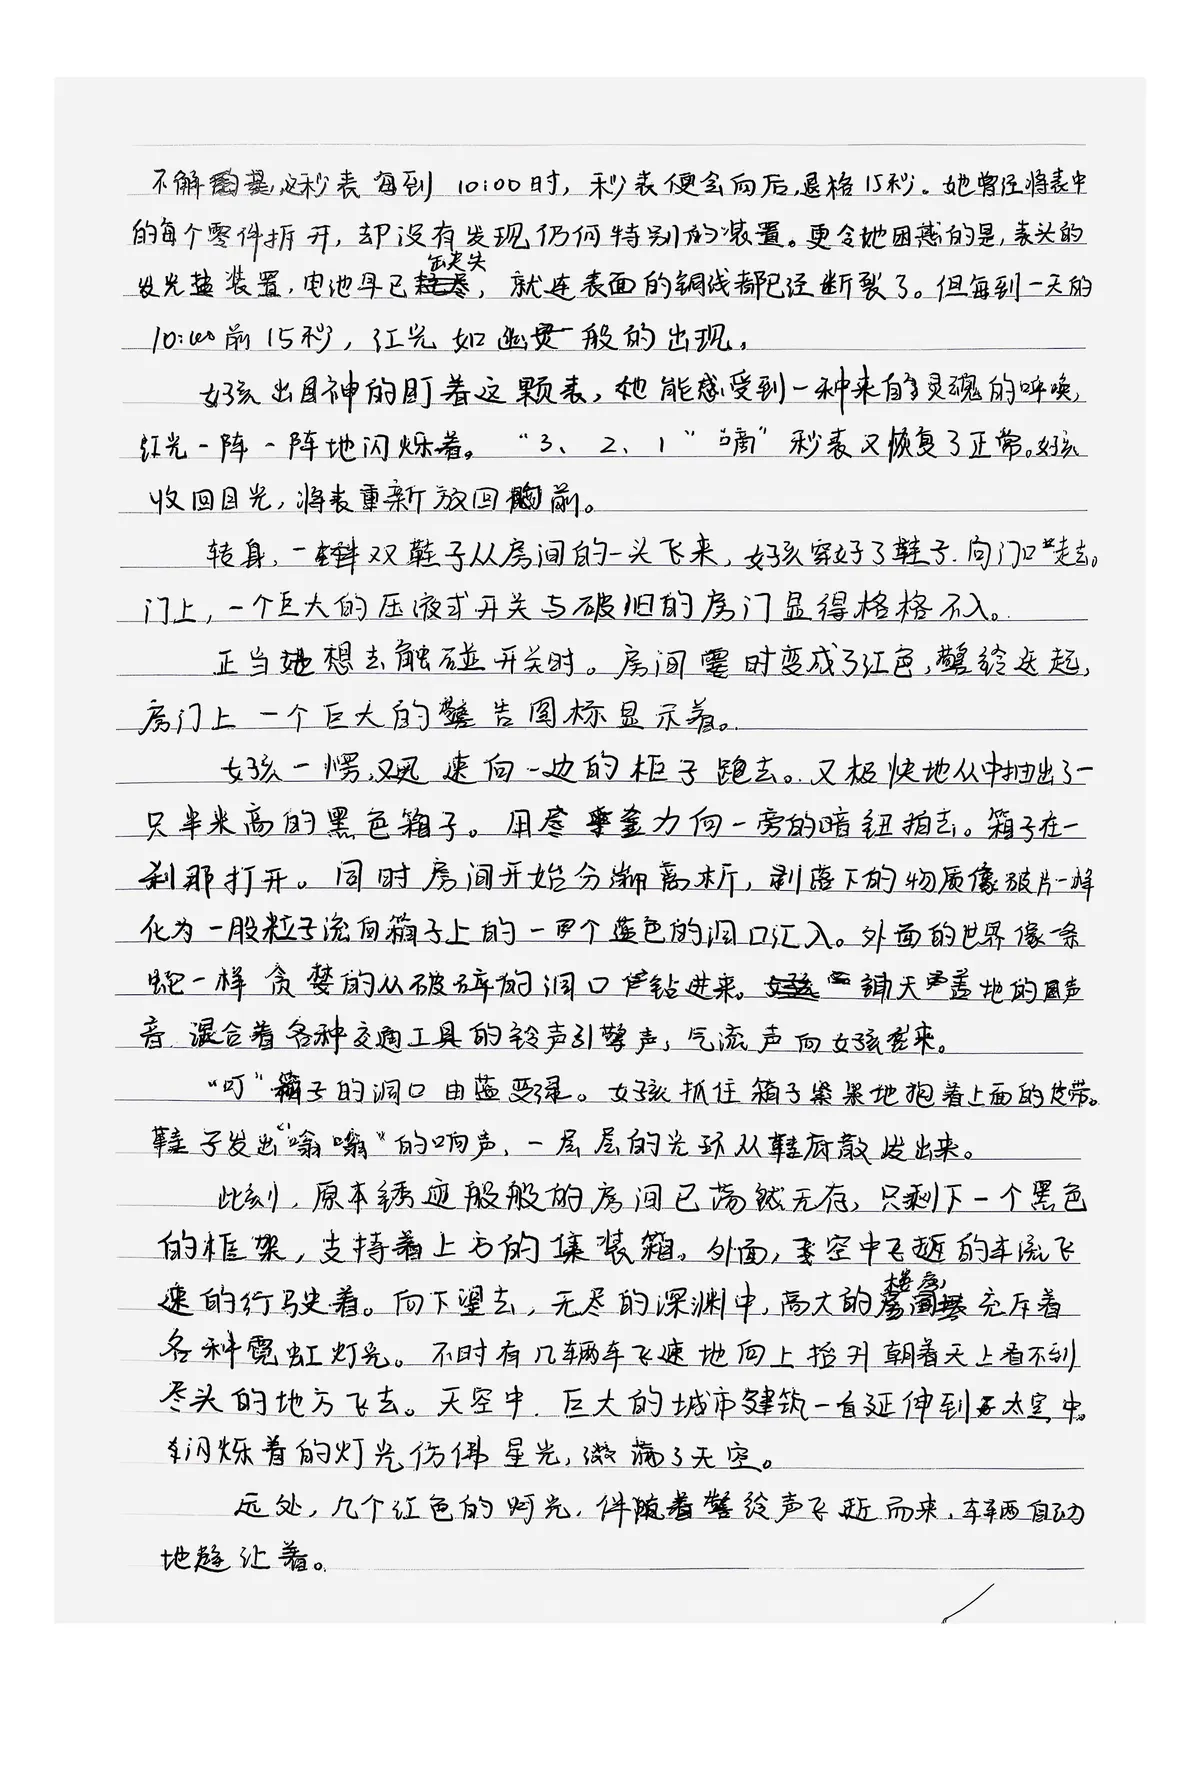 不解的是,这秒表每到10:00时，秒表便会向后退格15秒。她曾经将表中
的每个零件拆开，却没有发现任何特别的装置。更令她困惑的是，表头的
发光装置，电池早已缺失，就连表面的铜线都已经断裂了。但每到一天的
10:00前15秒，红光如幽灵一般的出现。
女孩出神的盯着这颗表，她能感受到一种来自灵魂的呼唤，
红光一阵一阵地闪烁着。“3、2、1”“嘀”秒表又恢复了正常。女孩
收回目光，将表重新放回胸前。
转身，一双鞋子从房间的一头飞来，女孩穿好了鞋子.向门口走去。
门上，一个巨大的压液式开关与破旧的房门显得格格不入。
正当她想去触碰开关时。房间霎时变成了红色，警铃迭起，
房门上一个巨大的警告图标显示着。
女孩一愣，又迅速向一边的柜子跑去。又极快地从中抽出了一
只半米高的黑色箱子。用尽全力向一旁的暗钮拍去。箱子在一
刹那打开。同时房间开始分崩离析，剥落下的物质像破片一样
化为一股粒子流向箱子上的一个蓝色的洞口汇入。外面的世界像一条
蛇一样贪婪的从破碎的洞口钻进来。铺天盖地的风声
音混合着各种交通工具的铃声引擎声，气流声向女孩袭来。
“叮”箱子的洞口由蓝变绿。女孩抓住箱子紧紧地抱着上面的皮带。
鞋子发出“嗡嗡”的响声，一层层的光环从鞋底散发出来。
此刻，原本锈迹般般的房间已荡然无存，只剩下一个黑色
的框架，支持着上方的集装箱。外面，空中飞越的车流飞
速的行驶着。向下望去，无尽的深渊中，高大的楼房充斥着
各种霓虹灯光。不时有几辆车飞速地向上抬升朝着天上看不到
尽头的地方飞去。天空中.巨大的城市建筑一直延伸到太空中。
闪烁着的灯光仿佛星光，缀满了天空。
远处，几个红色的灯光，伴随着警铃声飞逝而来，车辆自动
地避让着。